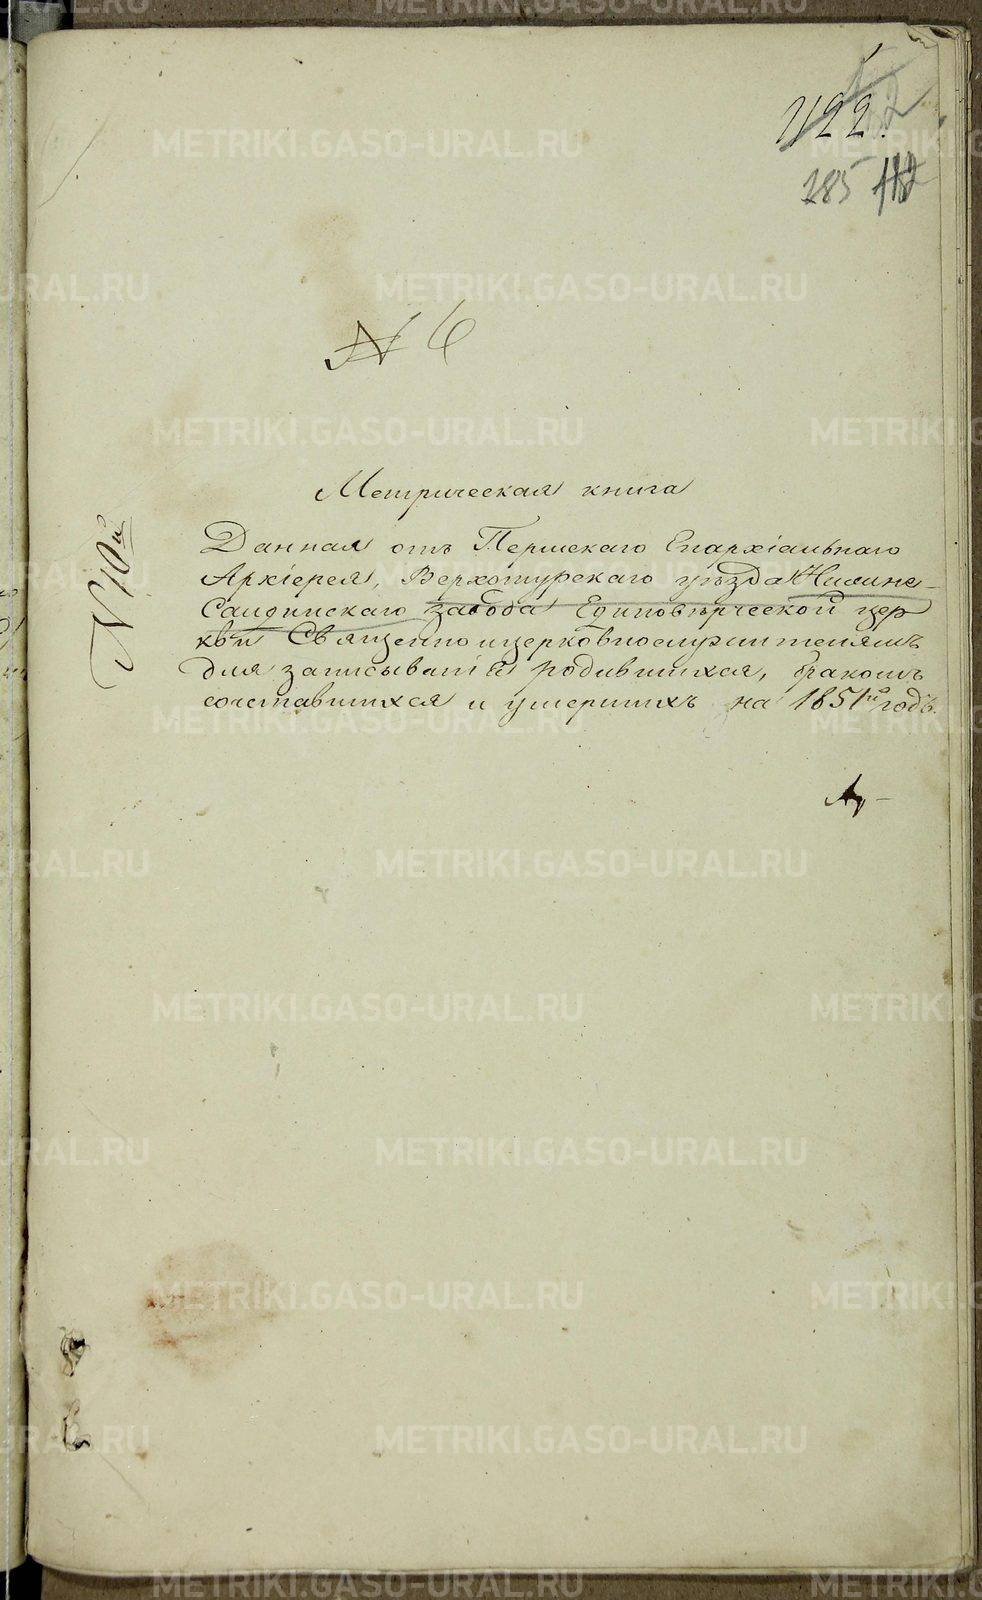 422.
285 112
N 6
N 10й
Метрическая книга
Данная отъ Пермскаго Епархіальнаго
Архіерея, Верхотурскаго уѣзда Нижне-
Салдинскаго завода Единовѣрческой цер
кви Священно и церковнослужителямъ
для записыванія родившихся, бракомъ
сочетавшихся и умершихъ на 1851й годъ.
METRIKI.GASO-URAL.RU